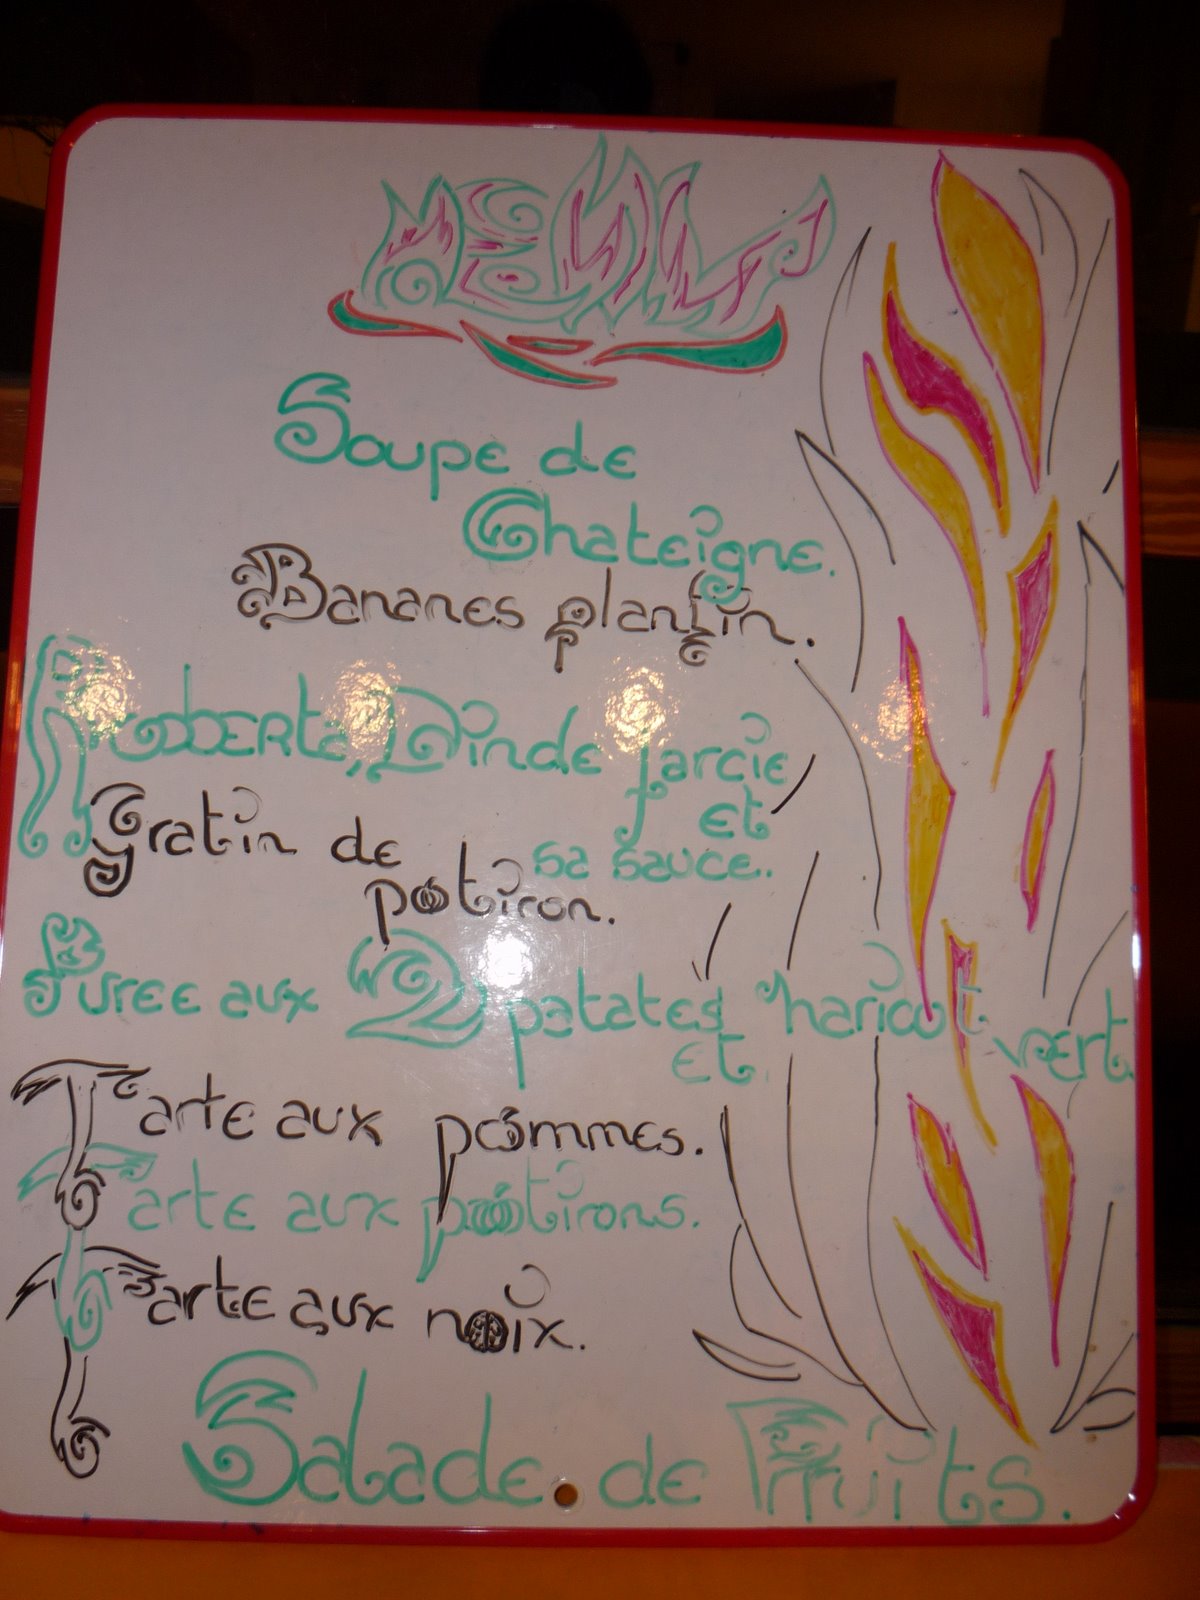 MENU
Soupe de
Chateigne.
Bananes plantin.
Roberta, Dinde farcie
et
sa sauce.
Gratin de
potiron.
Puree aux 2 patates haricot vert.
et
Tarte aux pommes.
Tarte aux potirons.
Tarte aux noix.
Salade de Fruits.